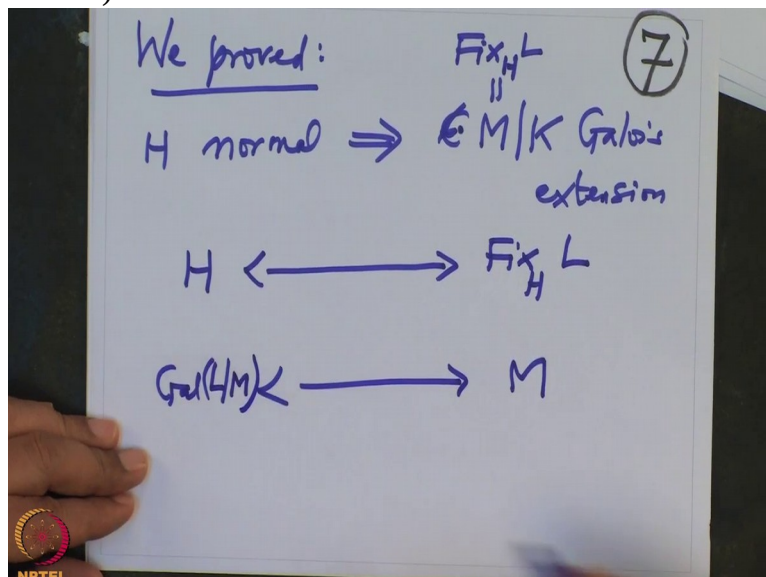 We proved:
Fix_H L 7
||
H normal ⇒ M/K Galois
extension
H <——> Fix_H L
Gal(L/M) <——> M
NPTEL